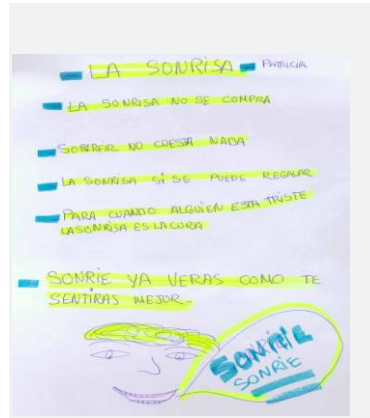 LA SONRISA PATRICIA
LA SONRISA NO SE COMPRA
SONREIR NO CUESTA NADA
LA SONRISA SI SE PUEDE REGALAR
PARA CUANDO ALGUIEN ESTA TRISTE
LA SONRISA ES LA CURA
SONRIE YA VERAS COMO TE
SENTIRAS MEJOR.
SONRIE
SONRIE